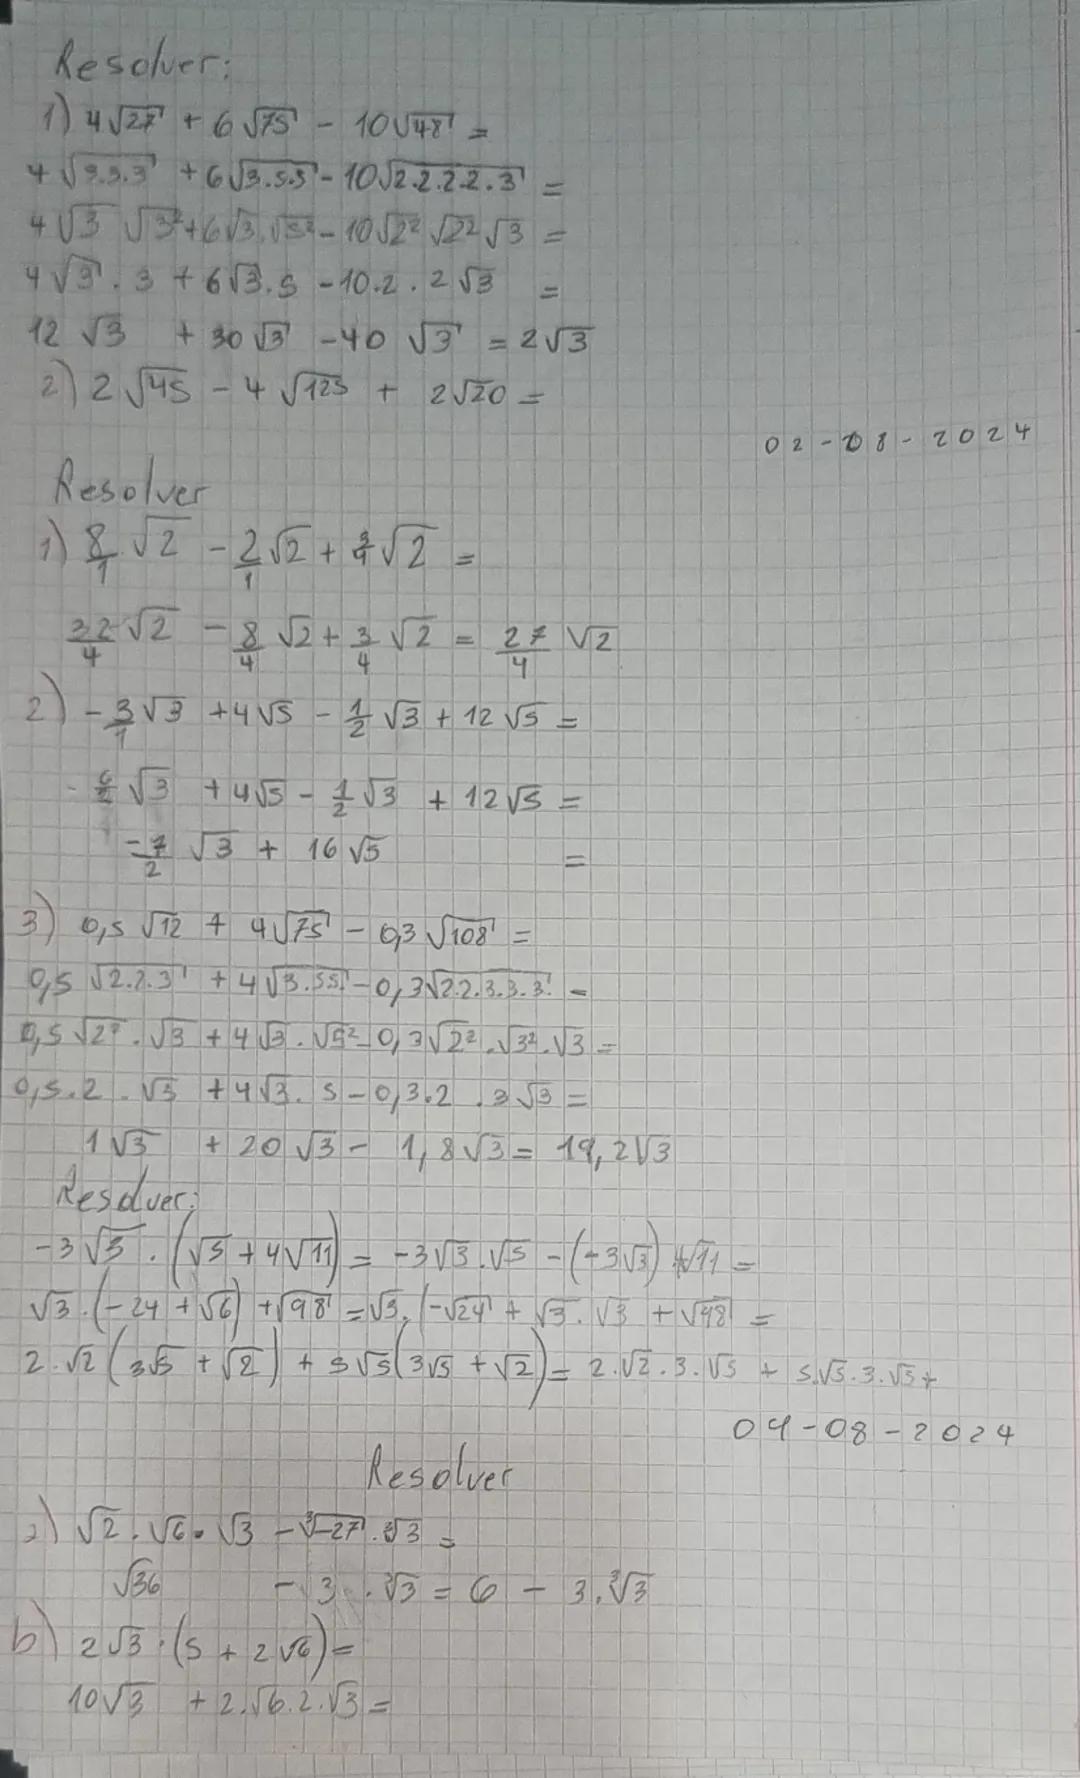 Resolver:
1) 4√27 + 6√75 - 10√48 =
4√3.3.3 + 6√3.5.5 - 10√2.2.2.2.3 =
4√3 √3² + 6√3.√5² - 10√2² √2² √3 =
4√3 . 3 + 6√3.5 - 10.2.2√3 =
12√3 + 30√3 - 40√3 = 2√3
2) 2√45 - 4√125 + 2√20 =
02-08-2024
Resolver
1) 8/1 √2 - 2/1 √2 + 3/4 √2 =
32/4 √2 - 8/4 √2 + 3/4 √2 = 27/4 √2
2) -3/1 √3 + 4√5 - 1/2 √3 + 12√5 =
-6/2 √3 + 4√5 - 1/2 √3 + 12√5 =
-7/2 √3 + 16√5 =
3) 0,5√12 + 4√75 - 0,3√108 =
0,5√2.2.3 + 4√3.5.5 - 0,3√2.2.3.3.3 =
0,5√2² . √3 + 4√3 . √5² - 0,3√2² . √3² . √3 =
0,5.2 . √3 + 4√3 . 5 - 0,3.2 . 3√3 =
1√3 + 20√3 - 1,8√3 = 19,2√3
Resolver:
-3√3 . (√5 + 4√11) = -3√3 . √5 - (-3√3) 4√11 =
√3 . (-24 + √6) + √98 = √3 . (-√24 + √3 . √3 + √98 =
2.√2 (3√5 + √2) + 5√5 (3√5 + √2) = 2.√2 . 3.√5 + 5.√5 . 3.√5 +
04-08-2024
Resolver
a) √2 . √6 . √3 - ∛-27 . ∛3 =
√36 - 3 . ∛3 = 6 - 3.∛3
b) 2√3 . (5 + 2√6) =
10√3 + 2.√6.2.√3 =